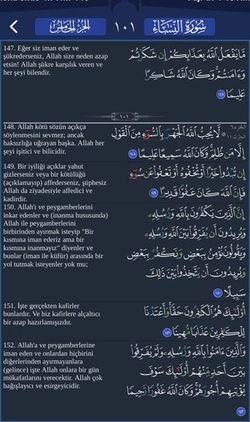 سورة النساء
١٠١
الجزء الخامس
147. Eğer siz iman eder ve
şükrederseniz, Allah size neden azap
etsin! Allah şükre karşılık veren ve
her şeyi bilendir.
مَا يَفْعَلُ اللَّهُ بِعَذَابِكُمْ إِن شَكَرْتُمْ
وَءَامَنتُمْ وَكَانَ اللَّهُ شَاكِرًا
148. Allah kötü sözün açıkça
söylenmesini sevmez; ancak
haksızlığa uğrayan başka. Allah her
şeyi işitici ve bilicidir.
لَا يُحِبُّ اللَّهُ الْجَهْرَ بِالسُّوءِ مِنَ الْقَوْلِ
إِلَّا مَن ظُلِمَ وَكَانَ اللَّهُ سَمِيعًا عَلِيمًا
149. Bir iyiliği açıklar yahut
gizlerseniz veya bir kötülüğü
(açıklamayıp) affederseniz, şüphesiz
Allah da ziyadesiyle affedici ve
kadirdir.
إِن تُبْدُوا خَيْرًا أَوْ تُخْفُوهُ أَوْ تَعْفُوا عَن سُوءٍ
فَإِنَّ اللَّهَ كَانَ عَفُوًّا قَدِيرًا
150. Allah'ı ve peygamberlerini
inkar edenler ve (inanma hususunda)
Allah ile peygamberlerini
birbirinden ayırmak isteyip "Bir
kısmına iman ederiz ama bir
kısmına inanmayız" diyenler ve
bunlar (iman ile küfür) arasında bir
yol tutmak isteyenler yok mu;
إِنَّ الَّذِينَ يَكْفُرُونَ بِاللَّهِ وَرُسُلِهِ
وَيُرِيدُونَ أَن يُفَرِّقُوا بَيْنَ اللَّهِ وَرُسُلِهِ
وَيَقُولُونَ نُؤْمِنُ بِبَعْضٍ وَنَكْفُرُ بِبَعْضٍ
وَيُرِيدُونَ أَن يَتَّخِذُوا بَيْنَ ذَٰلِكَ
سَبِيلًا
151. İşte gerçekten kafirler
bunlardır. Ve biz kafirlere alçaltıcı
bir azap hazırlamışızdır.
أُولَٰئِكَ هُمُ الْكَافِرُونَ حَقًّا وَأَعْتَدْنَا
لِلْكَافِرِينَ عَذَابًا مُّهِينًا
152. Allah'a ve peygamberlerine
iman eden ve onlardan hiçbirini
diğerlerinden ayırmayanlara
(gelince) işte Allah onlara bir gün
mükafatlarını verecektir. Allah çok
bağışlayıcı ve esirgeyicidir.
وَالَّذِينَ ءَامَنُوا بِاللَّهِ وَرُسُلِهِ وَلَمْ يُفَرِّقُوا
بَيْنَ أَحَدٍ مِّنْهُمْ أُولَٰئِكَ سَوْفَ
يُؤْتِيهِمْ أُجُورَهُمْ وَكَانَ اللَّهُ غَفُورًا رَّحِيمًا